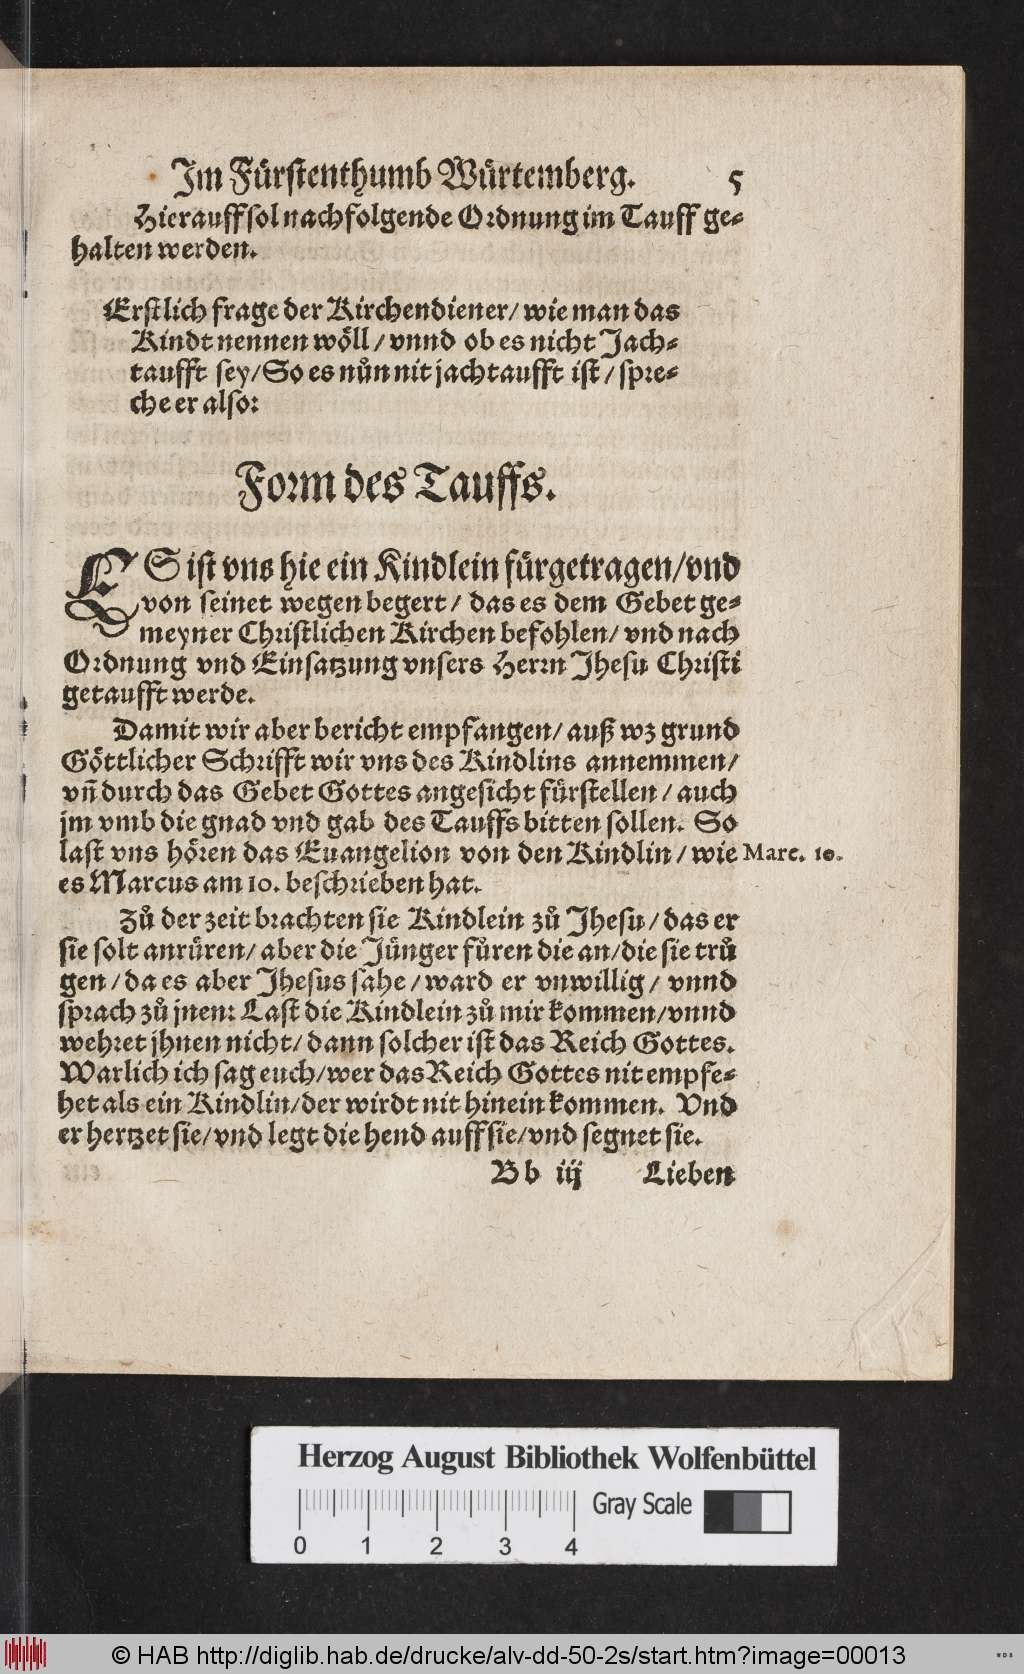 Im Fürstenthumb Würtemberg. 5
Hierauff sol nachfolgende Ordnung im Tauff ge-
halten werden.
Erstlich frage der Kirchendiener/ wie man das
Kindt nennen wöll/ vnnd ob es nicht Jach-
taufft sey/ So es nůn nit jachtaufft ist/ spre-
che er also:
Form des Tauffs.
ES ist vns hie ein Kindlein fürgetragen/ vnd
von seinet wegen begert/ das es dem Gebet ge-
meyner Christlichen Kirchen befohlen/ vnd nach
Ordnung vnd Einsatzung vnsers Herrn Jhesu Christi
getaufft werde.
Damit wir aber bericht empfangen/ auß wz grund
Göttlicher Schrifft wir vns des Kindlins annemmen/
vñ durch das Gebet Gottes angesicht fürstellen/ auch
jm vmb die gnad vnd gab des Tauffs bitten sollen. So
last vns hören das Euangelion von den Kindlin/ wie Marc. 10.
es Marcus am 10. beschrieben hat.
Zů der zeit brachten sie Kindlein zů Jhesu/ das er
sie solt anrüren/ aber die Jünger fůren die an/ die sie trů
gen/ da es aber Jhesus sahe/ ward er vnwillig/ vnnd
sprach zů jnen: Last die Kindlein zů mir kommen/ vnnd
wehret jhnen nicht/ dann solcher ist das Reich Gottes.
Warlich ich sag euch/ wer das Reich Gottes nit empfe-
het als ein Kindlin/ der wirdt nit hinein kommen. Vnd
er hertzet sie/ vnd legt die hend auff sie/ vnd segnet sie.
Bb iij Lieben
Herzog August Bibliothek Wolfenbüttel
Gray Scale
0 1 2 3 4
© HAB http://diglib.hab.de/drucke/alv-dd-50-2s/start.htm?image=00013